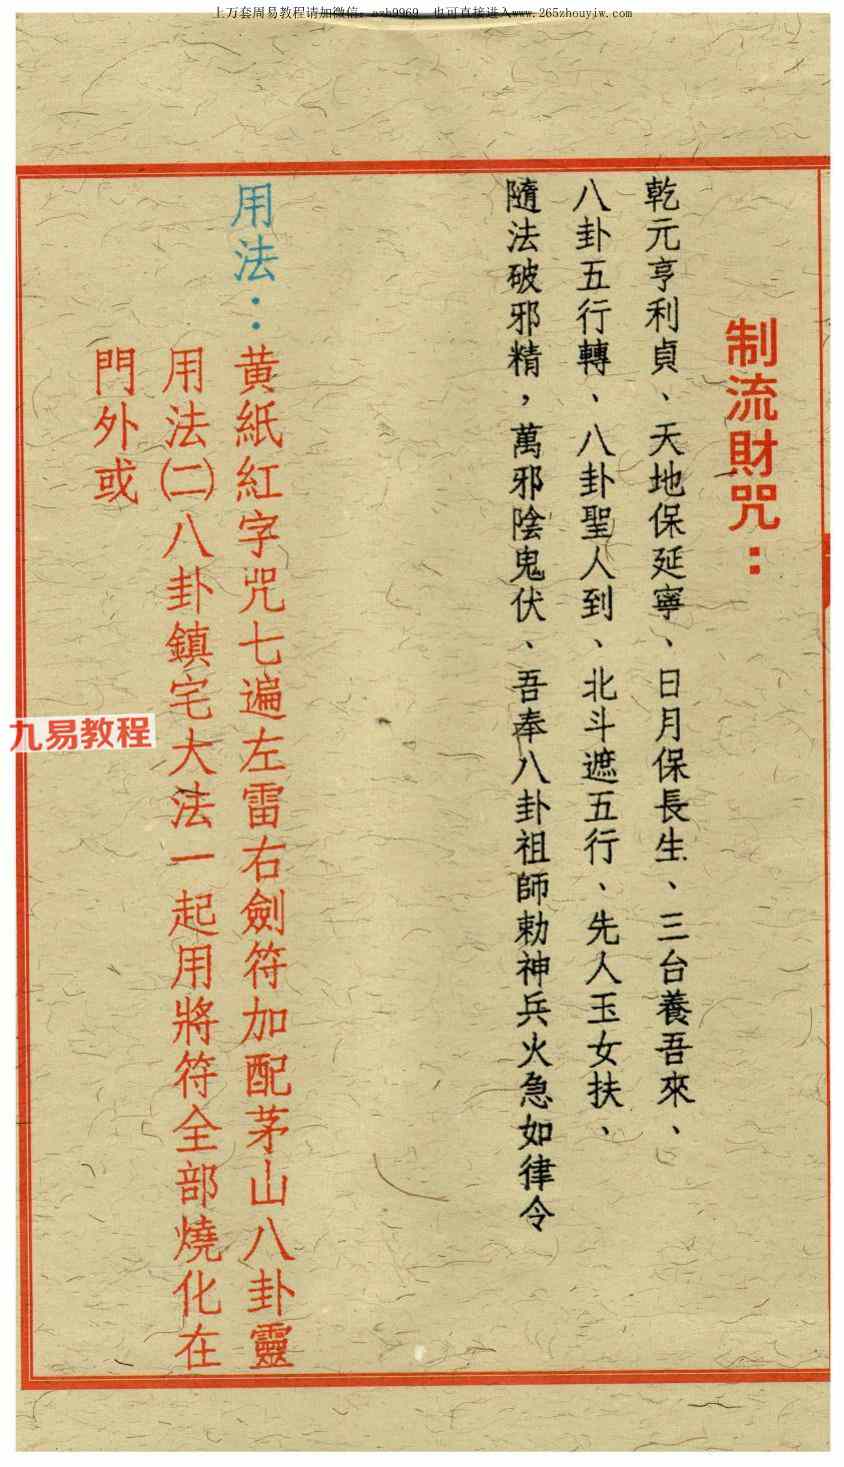 上万套周易教程请加微信：ezh9969 也可直接进入www.265zhouyiw.com
制流財咒：
乾元亨利貞、天地保延寧、日月保長生、三台養吾來、
八卦五行轉、八卦聖人到、北斗遮五行、先人玉女扶、
隨法破邪精，萬邪陰鬼伏、吾奉八卦祖師勅神兵火急如律令
用法：黄紙紅字咒七遍左雷右劍符加配茅山八卦靈
用法㈡八卦鎮宅大法一起用將符全部燒化在
門外或
九易教程